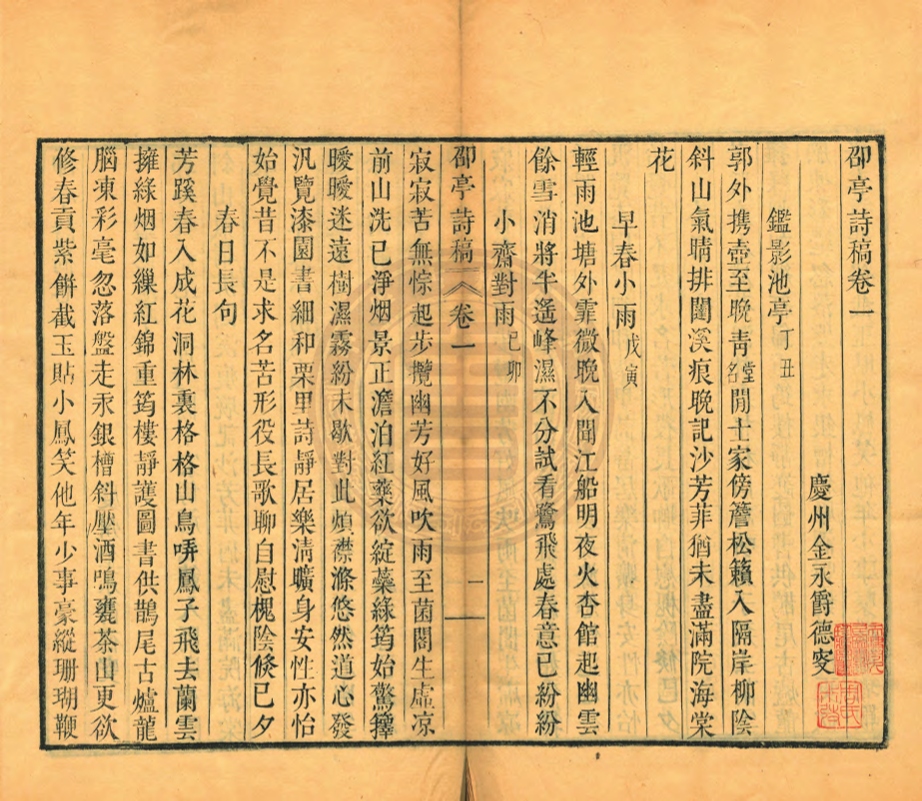 卲亭詩稿卷一
慶州金永爵德叟
鑑影池亭丁丑
郭外携壺至晚青堂名閒士家傍簷松籟入隔岸柳陰
斜山氣晴排闥溪痕晚記沙芳菲猶未盡滿院海棠
花
早春小雨戊寅
輕雨池塘外霏微晚入聞江船明夜火杏館起幽雲
餘雪消將半遙峰濕不分試看鷺飛處春意已紛紛
小齋對雨己卯
卲亭詩稿 卷一 一
寂寂苦無悰起步攬幽芳好風吹雨至菌閣生虛凉
前山洗已淨烟景正澹泊紅藥欲綻蘂綠筠始驚籜
曖曖迷遠樹濕霧紛未歇對此煩襟滌悠然道心發
汎覽漆園書細和栗里詩靜居樂淸曠身安性亦怡
始覺昔不是求名苦形役長歌聊自慰槐陰倐已夕
春日長句
芳蹊春入成花洞林裏格格山鳥哢鳳子飛去蘭雲
擁綠烟如繅紅錦重筠樓靜護圖書供鵲尾古爐龍
腦凍彩毫忽落盤走汞銀槽斜壓酒鳴甕茶山更欲
修春貢紫餠截玉貼小鳳笑他年少事豪縱珊瑚鞭